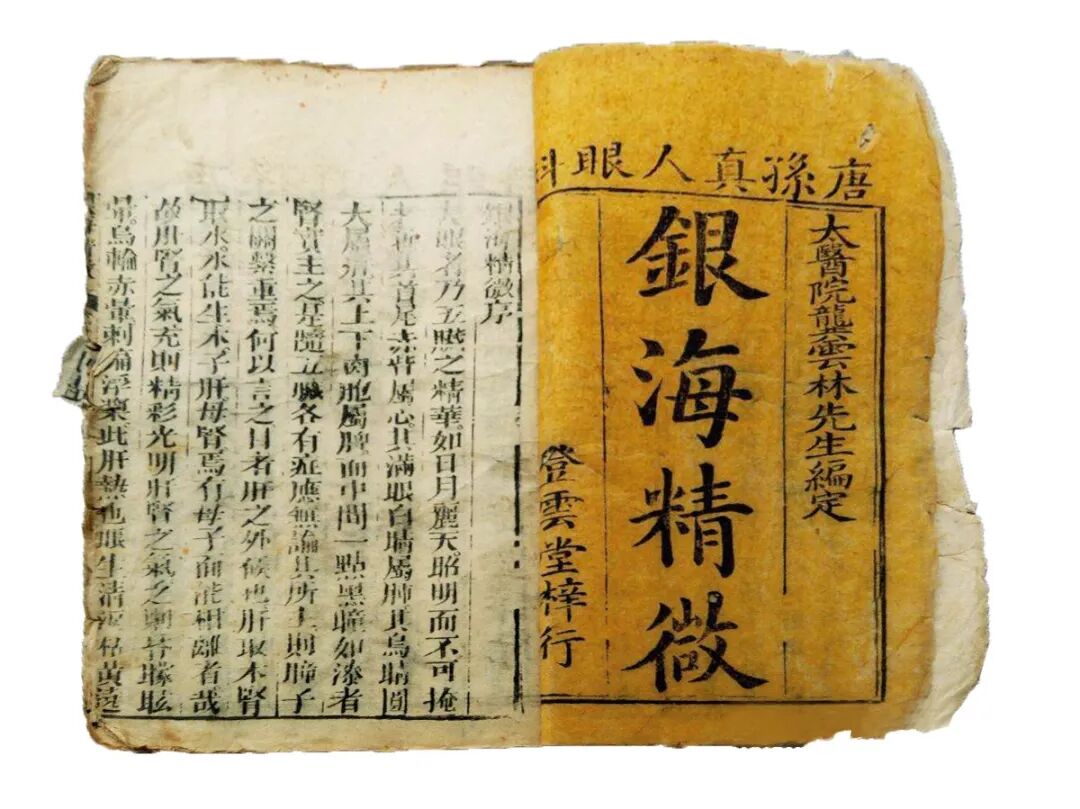 唐孫真人眼科
太醫院龔雲林先生編定
銀海精微
登雲堂梓行
銀海精微序
夫眼者乃五臟之精華如日月麗天昭明而不可掩
者也其首尾赤眥屬心其滿眼白睛屬肺其烏睛圓
大屬肝其上下肉胞屬脾而中間一點黑瞳如漆者
腎實主之是隨五臟各有症應無論其所主則瞳子
之關繫重焉何以言之目者肝之外候也肝取木腎
取水水能生木子肝母腎焉有母子而能相離者哉
故肝腎之氣充則精彩光明肝腎之氣乏則昏矇眩
暈烏輪赤暈刺痛浮漿此肝熱也眼生清淚枯黃遶